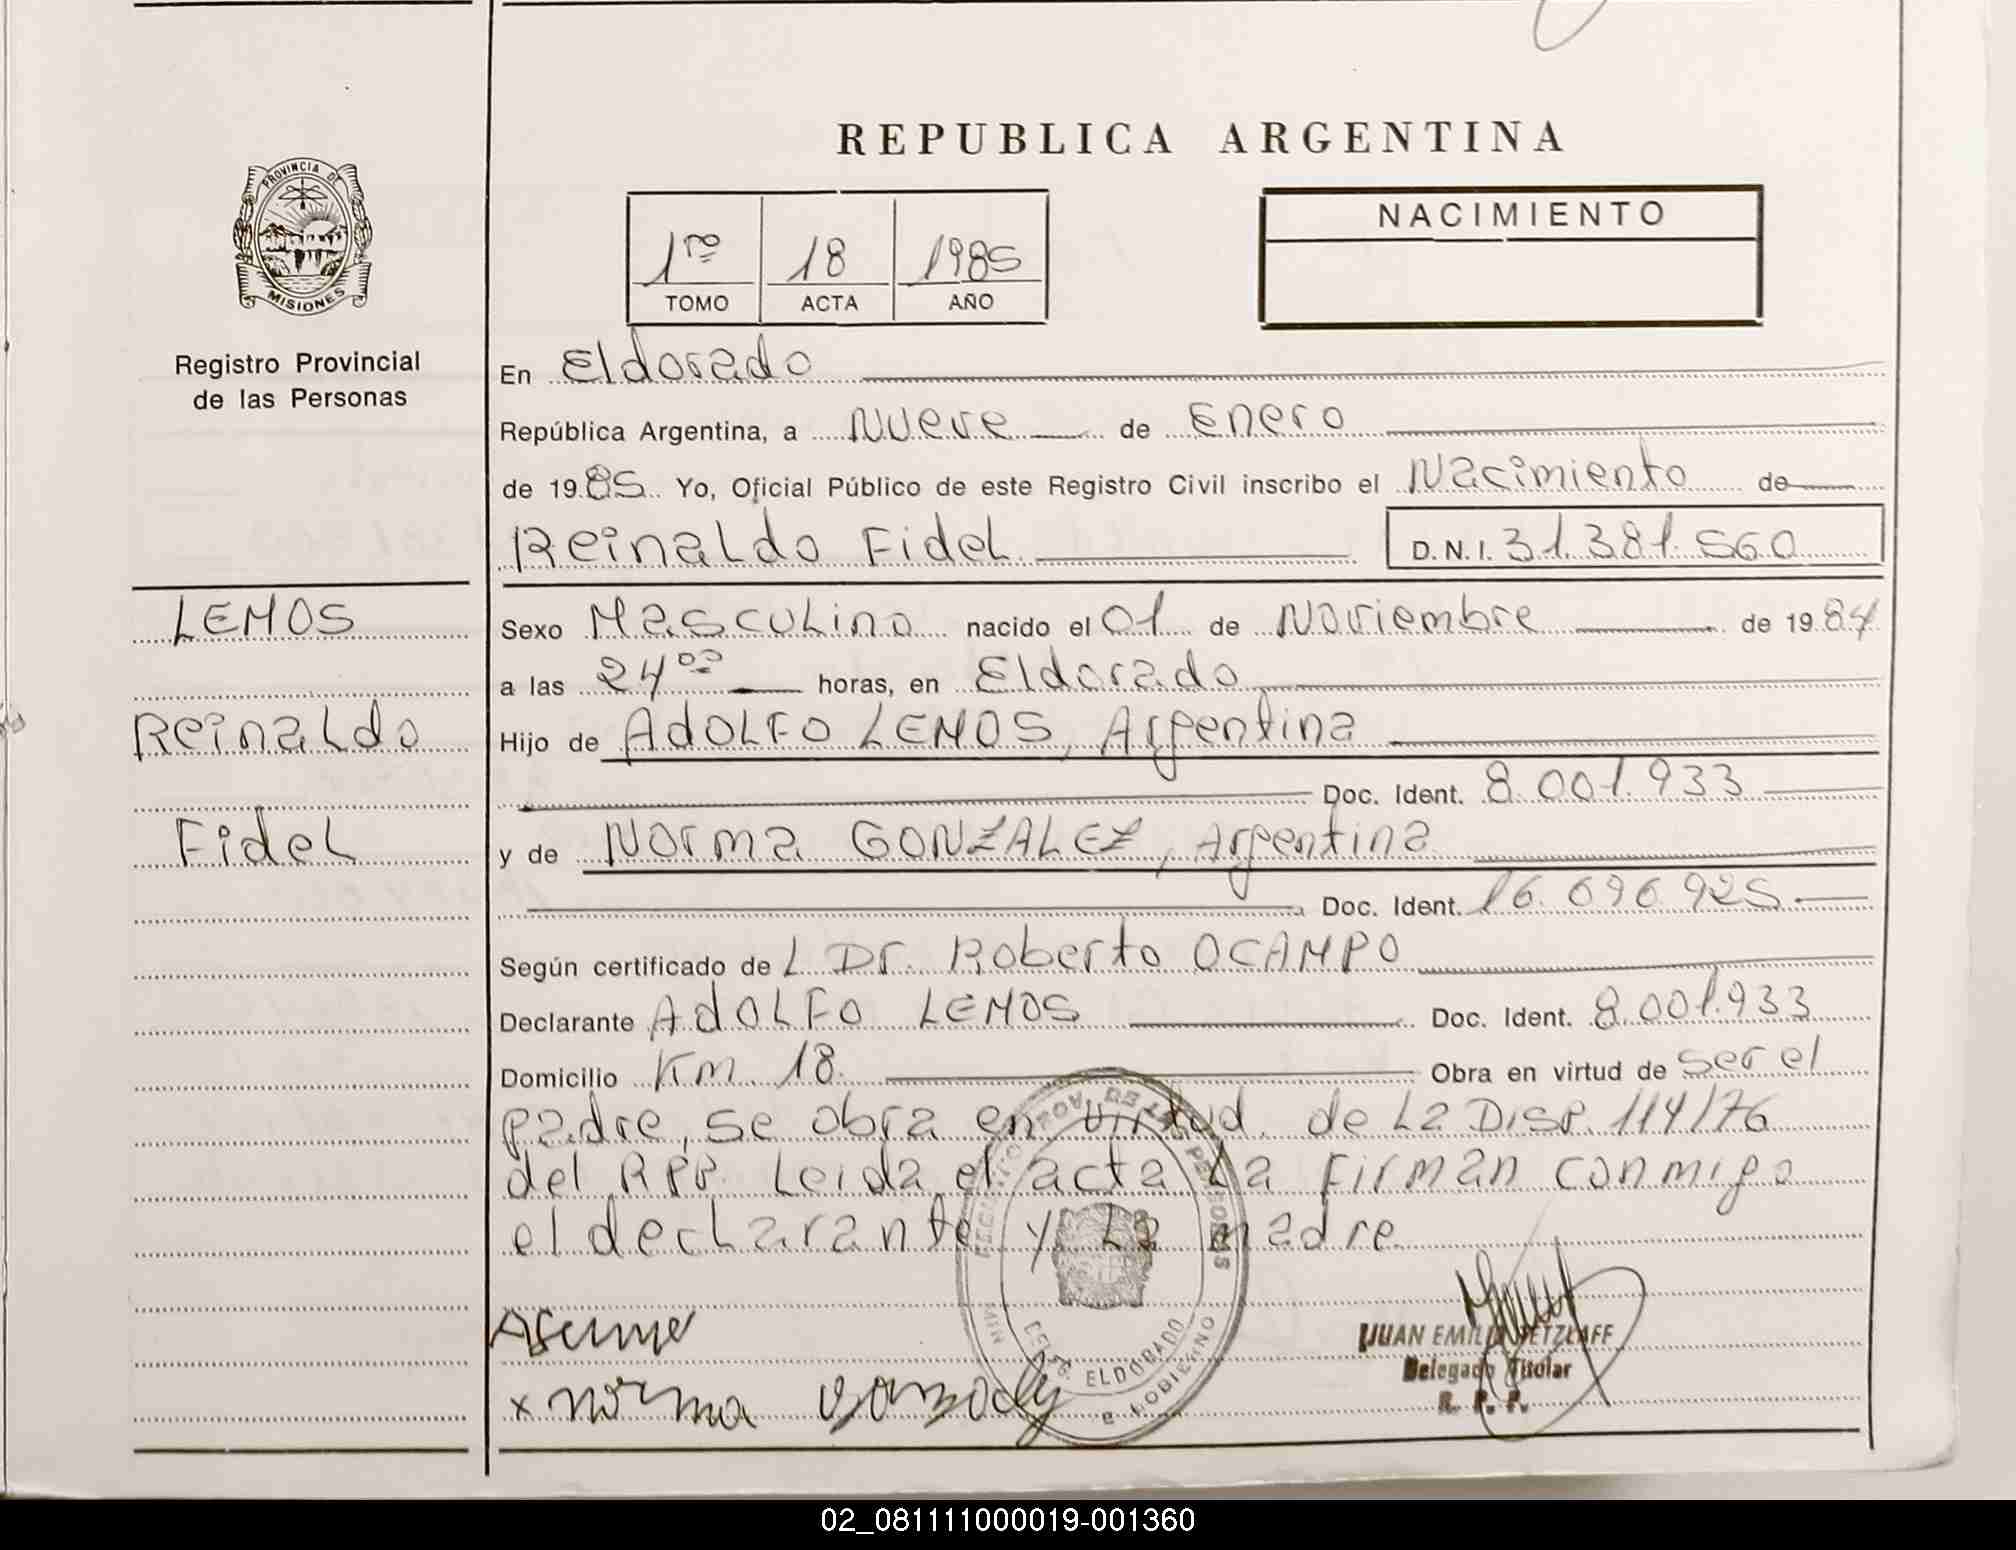 REPUBLICA ARGENTINA
PROVINCIA DE
MISIONES
Registro Provincial
de las Personas
1ro 18 1985
TOMO ACTA AÑO
NACIMIENTO
En Eldorado
República Argentina, a Nueve de Enero
de 1985 Yo, Oficial Público de este Registro Civil inscribo el Nacimiento de
Reinaldo Fidel D.N.I. 31.381.560
LEMOS
Reinaldo
Fidel
Sexo Masculino nacido el 01 de Noviembre de 1984
a las 24 00 horas, en Eldorado
Hijo de Adolfo LEMOS, Argentina
Doc. Ident. 8.001.933
y de Norma GONZALEZ, Argentina
Doc. Ident. 16.696.925
Según certificado del Dr. Roberto OCAMPO
Declarante Adolfo LEMOS Doc. Ident. 8.001.933
Domicilio Km. 18. Obra en virtud de ser el
padre, se obra en virtud de La Disp. 114/76
del RPP. Leida el acta La firman conmigo
el declarante y La madre
x Norma
ELDORADO
JUAN EMILIO PETZLAFF
Delegado Titular
R. P. P.
02_081111000019-001360